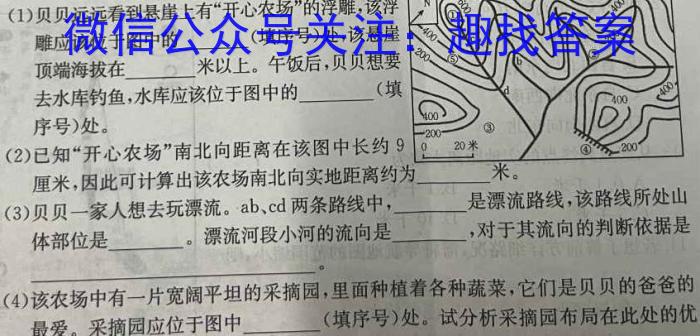 (1)贝贝远远看到悬崖上有“开心农场”的浮雕,该浮
雕应 图中的 (填序号)处,该悬崖
微信公众号关注：趣找答案
顶端海拔在________米以上。午饭后,贝贝想要
去水库钓鱼,水库应该位于图中的________(填
序号)处。
(2)已知“开心农场”南北向距离在该图中长约 9
厘米,因此可计算出该农场南北向实地距离约为________米。
(3)贝贝一家人想去玩漂流。ab、cd 两条路线中,________是漂流路线,该路线所处山
体部位是________。漂流河段小河的流向是________,对于其流向的判断依据是
________。
(4)该农场中有一片宽阔平坦的采摘园,里面种植着各种蔬菜,它们是贝贝的爸爸的
最爱。采摘园应位于图中________(填序号)处。试分析采摘园布局在此处的优
N
400
200
⑤
b
d
③
400
200
0 20 米
400
400
200
④